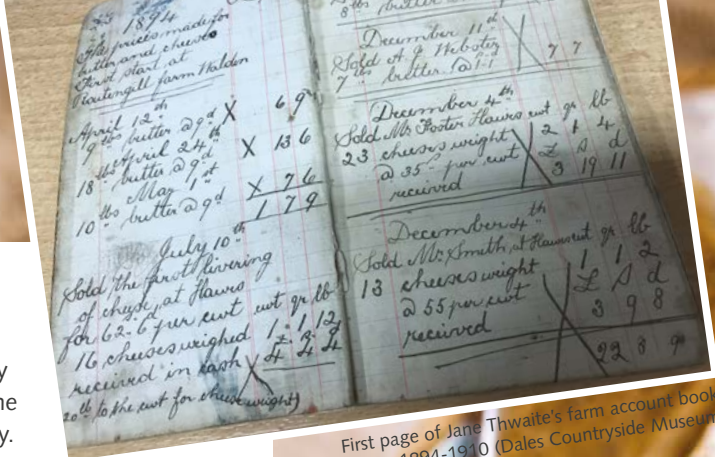 1894
The prices made for
butter and cheese
First start at
Routengill farm Walden
April 12th
9 lbs butter @ 9d X 6 9
18 lbs April 24th
butter @ 9d X 13 6
May 1st
10 lbs butter @ 9d X 7 6
1 7 9
July 10th
Sold the first livering
of cheese, at Hawes
for 62-6 per cwt cwt qr lb
16 cheeses weighed 1 1 12
£ s d
received in cash X 4 4 4
to the cwt for cheese weight)
8 lbs butter
December 11th
Sold A J Webster
7 lbs butter @ 1-1 X 7 7
December 4th
Sold Mr Foster Hawes cwt qr lb
23 cheeses weight 2 1 4
@ 35- per cwt £ s d
received 3 19 11
December 4th
Sold Mr Smith, at Hawes cwt qr lb
13 cheeses weight 1 1 2
@ 55 per cwt £ s d
received 3 9 8
22 8
First page of Jane Thwaite's farm account book
1894-1910 (Dales Countryside Museum
y
ne
y.